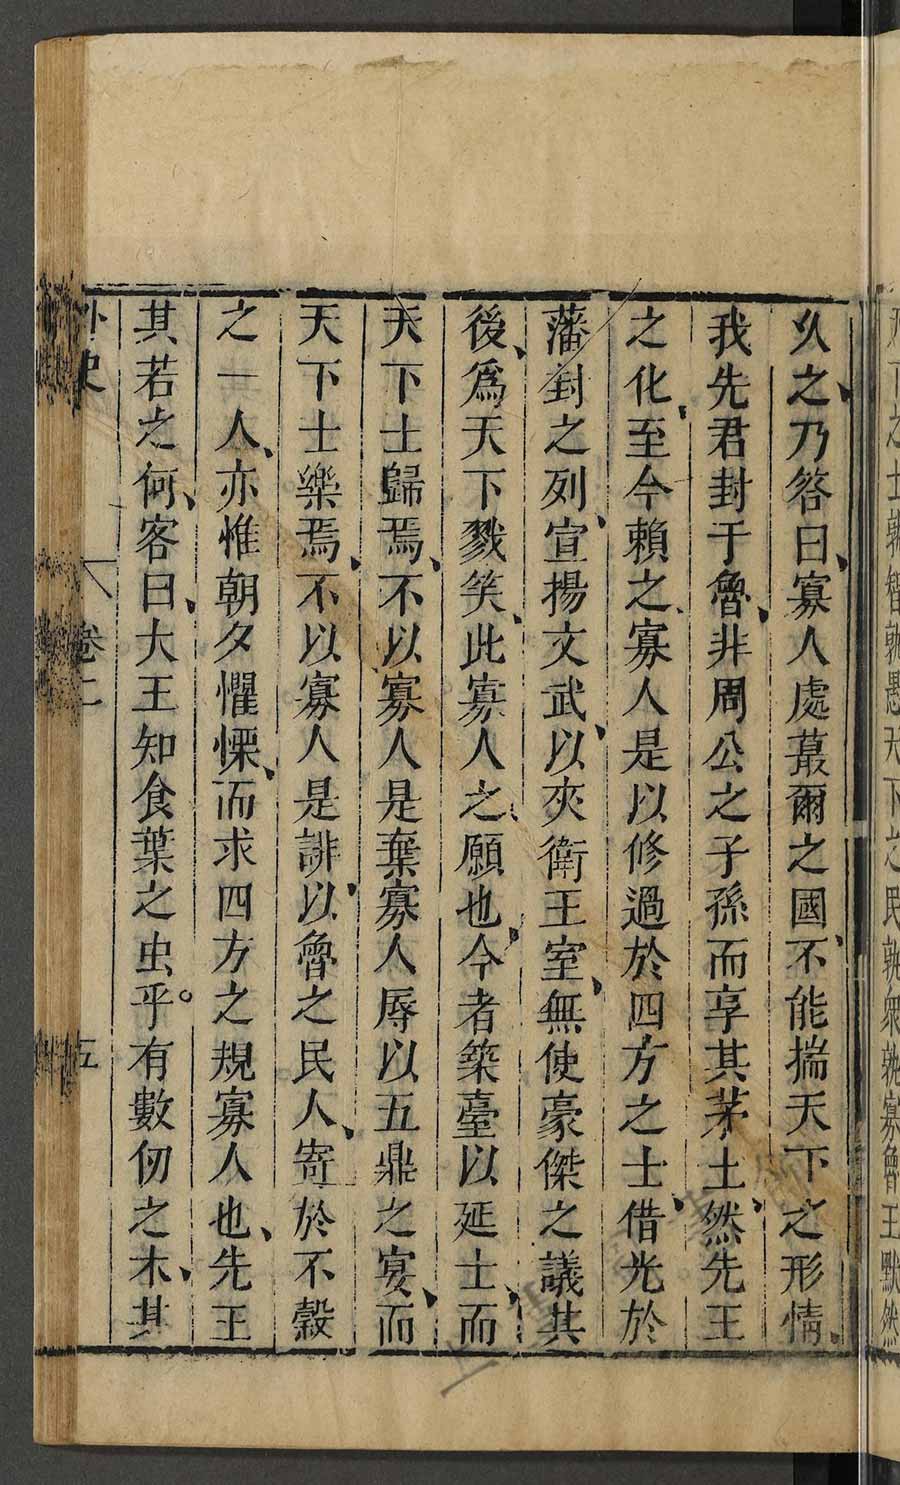 天下之士孰智孰愚天下之民孰衆孰寡魯王默然
久之乃答曰寡人處蕞爾之國不能揣天下之形情
我先君封于魯非周公之子孫而享其茅土然先王
之化至今賴之寡人是以修過於四方之士借光於
藩封之列宣揚文武以夾衛王室無使豪傑之議其
後爲天下戮笑此寡人之願也今者築臺以延士而
天下士歸焉不以寡人是棄寡人辱以五鼎之宴而
天下士樂焉不以寡人是誹以魯之民人寄於不穀
之一人亦惟朝夕懼慄而求四方之規寡人也先王
其若之何客曰大王知食葉之虫乎。有數仞之木其
外史 卷二 五